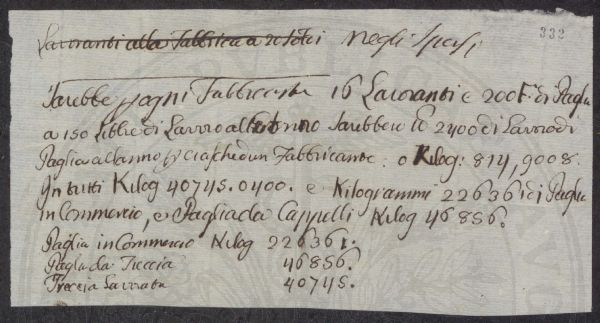 Lavoranti alla Fabbrica a negli Spasi
332
Sarebbe p ogni Fabbricante 16 Lavoranti e 200 di Paglia
a 150 Libbre di Lavoro all anno Sarebbero lb 2400 di Lavoro di
Paglia all anno p ciaschedun Fabbricante: o Kilog: 814,9008.
In tutti Kilog 40745.0400. e Kilogrammi 226361 di Paglia
in Commercio, e Paglia da Cappelli Kilog 46856.
Paglia in Commercio Kilog 226361.
Paglia da Treccia 46856.
Treccia Lavorata 40745.